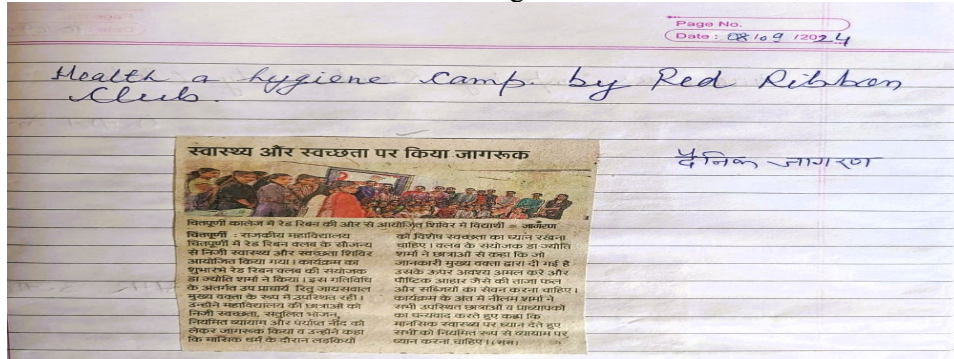 Page No.
Date : 08/09/2024
Health a hygiene camp. by Red Ribbon
Club.
दैनिक जागरण
स्वास्थ्य और स्वच्छता पर किया जागरूक
चिंतपूर्णी कालेज में रेड रिबन की ओर से आयोजित शिविर में विद्यार्थी ● जागरण
चिंतपूर्णी : राजकीय महाविद्यालय
चिंतपूर्णी में रेड रिबन क्लब के सौजन्य
से निजी स्वास्थ्य और स्वच्छता शिविर
आयोजित किया गया। कार्यक्रम का
शुभारंभ रेड रिबन क्लब की संयोजक
डा ज्योति शर्मा ने किया। इस गतिविधि
के अंतर्गत उप प्राचार्य रितु जायसवाल
मुख्य वक्ता के रूप में उपस्थित रही।
उन्होंने महाविद्यालय की छात्राओं को
निजी स्वच्छता, संतुलित भोजन,
नियमित व्यायाम और पर्याप्त नींद को
लेकर जागरूक किया व उन्होंने कहा
कि मासिक धर्म के दौरान लड़कियों
को विशेष स्वच्छता का ध्यान रखना
चाहिए। क्लब के संयोजक डा ज्योति
शर्मा ने छात्राओं से कहा कि जो
जानकारी मुख्य वक्ता द्वारा दी गई है
उसके ऊपर अवश्य अमल करें और
पौष्टिक आहार जैसे की ताजा फल
और सब्जियों का सेवन करना चाहिए।
कार्यक्रम के अंत में नीलम शर्मा ने
सभी उपस्थित छात्राओं व प्राध्यापकों
का धन्यवाद करते हुए कहा कि
मानसिक स्वास्थ्य पर ध्यान देते हुए
सभी को नियमित रूप से व्यायाम पर
ध्यान करना चाहिए। (संस)